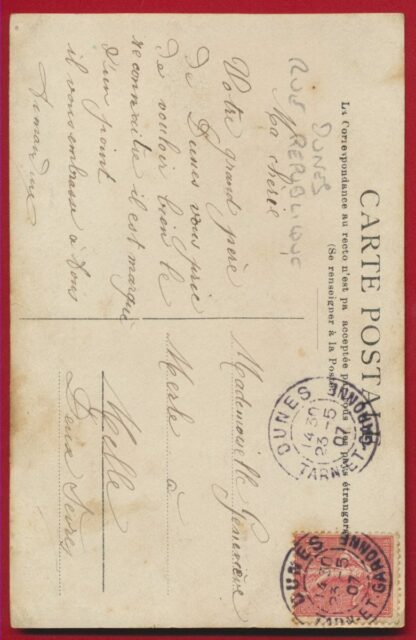 CARTE POSTALE
La Correspondance au recto n'est pas acceptée par tous les pays étrangers
(Se renseigner à la Poste)
DUNES
RUE REPUBLIQUE
Ma chérie
Votre grand père
de Dunes vous prie
de vouloir bien le
reconnaitre il est marqué
d'un point
il vous embrasse à tous
Mademoiselle Geneviève
Merle à
Melle
Deux Sevres
DUNES
14 30
23 - 5
07
TARN-ET-GARONNE
DUNES
14 30
23 - 5
07
TARN-ET-GARONNE